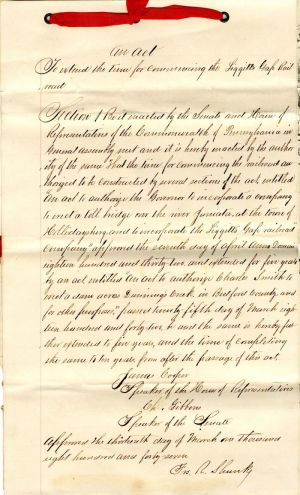 An act
To extend the time for commencing the Liggitts Gap Rail
road
Section 1 Be it enacted by the Senate and House of
Representatives of the Commonwealth of Pennsylvania in
General Assembly met and it is hereby enacted by the author
ity of the same That the time for commencing the railroad au
thorized to be constructed by several sections of the act, entitled
"An act to authorize the Governor to incorporate a company
to erect a toll bridge over the river Juniata, at the town of
Hollidaysburg, and to incorporate the Liggitts Gap railroad
Company" approved the seventh day of April Anno Domini
eighteen hundred and thirty two, and extended for five years
by an act entitled "An act to authorize Charles Smith to
erect a dam across Dunnings creek, in Bedford County, and
for other purposes" passed twenty fifth day of March eigh
teen hundred and forty two, be and the same is hereby fur
ther extended to five years, and the time of completing
the same to ten years, from after the passage of this act.
James Cooper
Speaker of the House of Representatives
Ch. Gibbons
Speaker of the Senate
Approved the thirteenth day of March one thousand
eight hundred and forty seven
Frs. R. Shunk